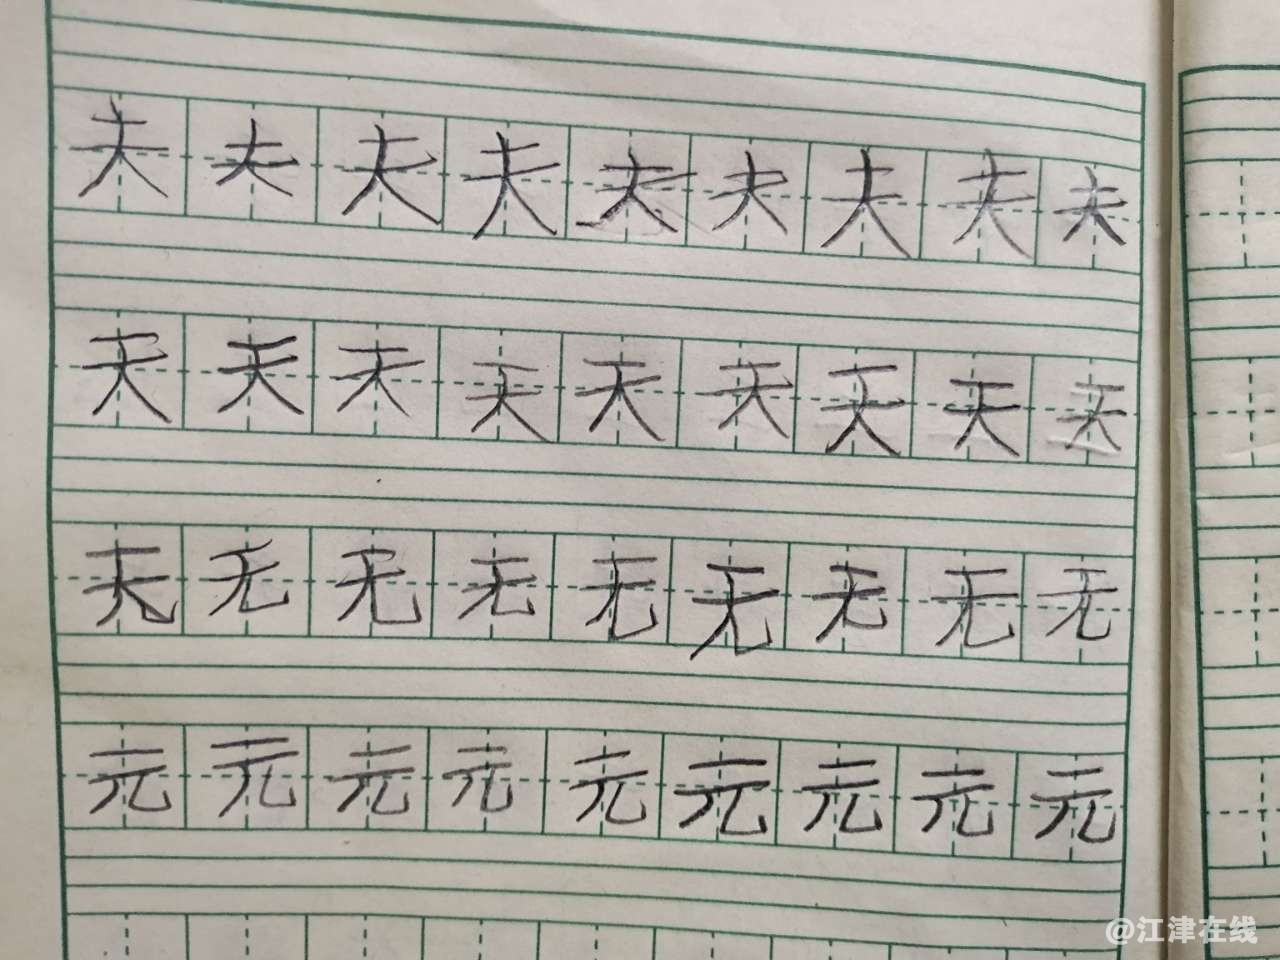 夫夫夫夫夫夫夫夫夫
天天天天天天天天天
无无无无无无无无无
元元元元元元元元元
@江津在线